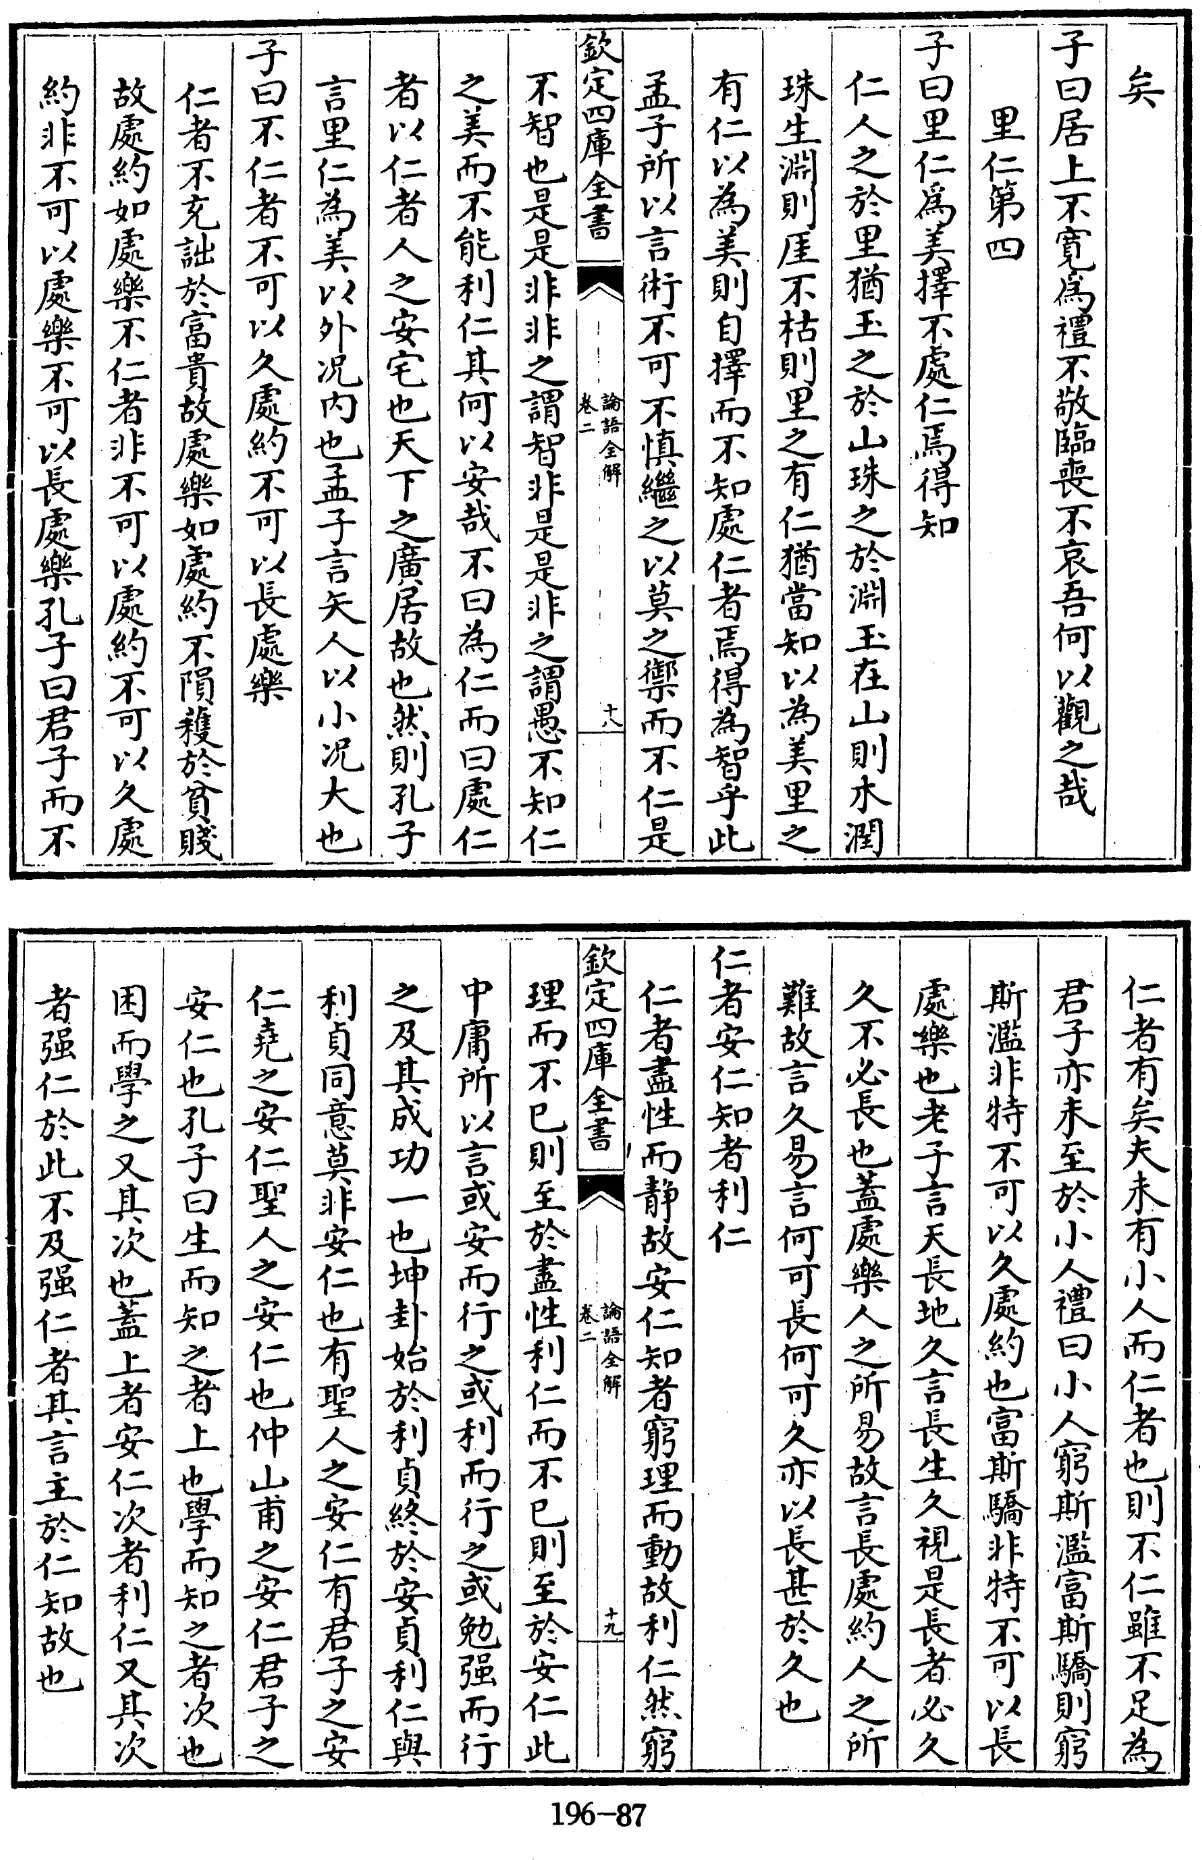 矣
子曰居上不寛爲禮不敬臨喪不哀吾何以觀之哉
里仁第四
子曰里仁爲美擇不處仁焉得知
仁人之於里猶玉之於山珠之於淵玉在山則木潤
珠生淵則厓不枯則里之有仁猶當知以為美里之
有仁以為美則自擇而不知處仁者焉得為智乎此
孟子所以言術不可不慎繼之以莫之禦而不仁是
欽定四庫全書
論語全解
卷二
十八
不智也是是非非之謂智非是是非之謂愚不知仁
之美而不能利仁其何以安哉不曰為仁而曰處仁
者以仁者人之安宅也天下之廣居故也然則孔子
言里仁為美以外况内也孟子言矢人以小况大也
子曰不仁者不可以久處約不可以長處樂
仁者不充詘於富貴故處樂如處約不隕穫於貧賤
故處約如處樂不仁者非不可以處約不可以久處
約非不可以處樂不可以長處樂孔子曰君子而不
仁者有矣夫未有小人而仁者也則不仁雖不足為
君子亦未至於小人禮曰小人窮斯濫富斯驕則窮
斯濫非特不可以久處約也富斯驕非特不可以長
處樂也老子言天長地久言長生久視是長者必久
久不必長也蓋處樂人之所易故言長處約人之所
難故言久易言何可長何可久亦以長甚於久也
仁者安仁知者利仁
仁者盡性而静故安仁知者窮理而動故利仁然窮
欽定四庫全書
論語全解
卷二
十九
理而不已則至於盡性利仁而不已則至於安仁此
中庸所以言或安而行之或利而行之或勉强而行
之及其成功一也坤卦始於利貞終於安貞利仁與
利貞同意莫非安仁也有聖人之安仁有君子之安
仁堯之安仁聖人之安仁也仲山甫之安仁君子之
安仁也孔子曰生而知之者上也學而知之者次也
困而學之又其次也蓋上者安仁次者利仁又其次
者强仁於此不及强仁者其言主於仁知故也
196-87